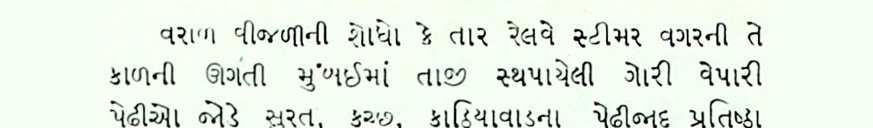 વરાળ વીજળીની શોધો કે તાર રેલવે સ્ટીમર વગરની તે
કાળની ઊગતી મુંબઈમાં તાજી સ્થપાયેલી ગોરી વેપારી
પેઢીઓ જોડે સુરત, કચ્છ, કાઠિયાવાડના પેઢીજાદ પ્રતિષ્ઠા